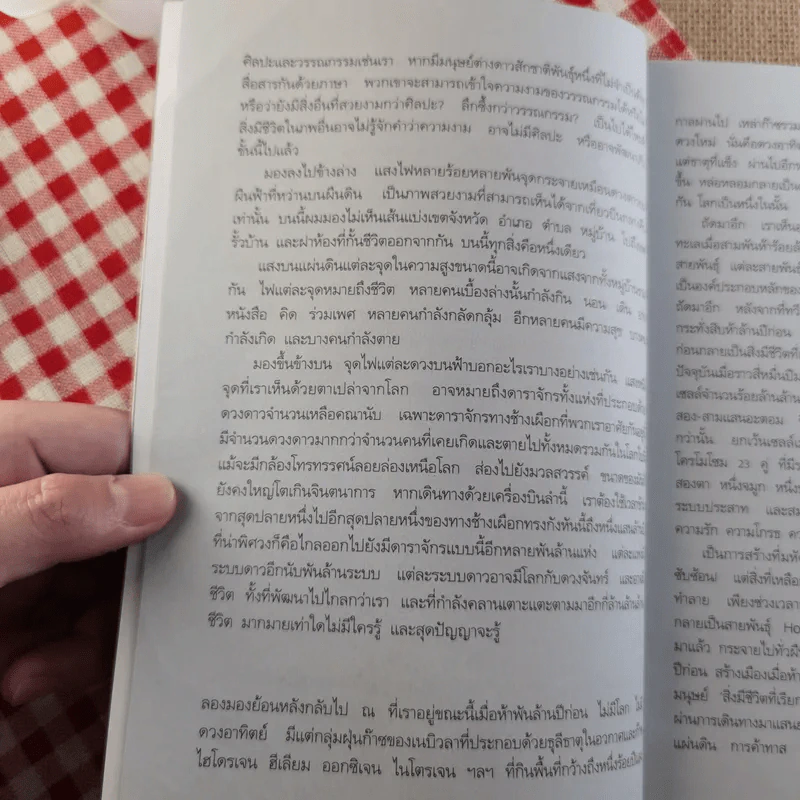 ศิลปะและวรรณกรรมเช่นเรา หากมีมนุษย์ต่างดาวสักชาติพันธุ์หนึ่งที่ไม่จำเป็นต้อง
สื่อสารกันด้วยภาษา พวกเขาจะสามารถเข้าใจความงามของวรรณกรรมได้หรือไม่
หรือว่ายังมีสิ่งอื่นที่สวยงามกว่าศิลปะ? ลึกซึ้งกว่าวรรณกรรม? เป็นไปได้ไหม
สิ่งมีชีวิตในภพอื่นอาจไม่รู้จักคำว่าความงาม อาจไม่มีศิลปะ หรืออาจ
ขั้นนี้ไปแล้ว
มองลงไปข้างล่าง แสงไฟหลายร้อยหลายพันจุดกระจายเหมือนดวงดาว
ผืนฟ้าที่หว่านบนผืนดิน เป็นภาพสวยงามที่สามารถเห็นได้จากเที่ยวบินกลางคืน
เท่านั้น บนนี้ผมมองไม่เห็นเส้นแบ่งเขตจังหวัด อำเภอ ตำบล หมู่บ้าน ไม่มี
รั้วบ้าน และฝาห้องที่กั้นชีวิตออกจากกัน บนนี้ทุกสิ่งคือหนึ่งเดียว
แสงบนแผ่นดินแต่ละจุดในความสูงขนาดนี้อาจเกิดจากแสงจากทั้งหมู่บ้าน
กัน ไฟแต่ละจุดหมายถึงชีวิต หลายคนเบื้องล่างนั้นกำลังกิน นอน เดิน
หนังสือ คิด ร่วมเพศ หลายคนกำลังกลัดกลุ้ม อีกหลายคนมีความสุข
กำลังเกิด และบางคนกำลังตาย
มองขึ้นข้างบน จุดไฟแต่ละดวงบนฟ้าบอกอะไรเราบางอย่างเช่นกัน
จุดที่เราเห็นด้วยตาเปล่าจากโลก อาจหมายถึงดาราจักรทั้งแห่งที่ประกอบด้วย
ดวงดาวจำนวนเหลือคณานับ เฉพาะดาราจักรทางช้างเผือกที่พวกเราอาศัยกันอยู่
มีจำนวนดวงดาวมากกว่าจำนวนคนที่เคยเกิดและตายไปทั้งหมดรวมกันในโลก
แม้จะมีกล้องโทรทรรศน์ลอยล่องเหนือโลก ส่องไปยังมวลสวรรค์ ขนาดของ
ยังคงใหญ่โตเกินจินตนาการ หากเดินทางด้วยเครื่องบินลำนี้ เราต้องใช้เวลา
จากสุดปลายหนึ่งไปอีกสุดปลายหนึ่งของทางช้างเผือกทรงกังหันนี้ถึงหนึ่งแสนล้าน
ที่น่าพิศวงก็คือไกลออกไปยังมีดาราจักรแบบนี้อีกหลายพันล้านแห่ง แต่ละแห่ง
ระบบดาวอีกนับพันล้านระบบ แต่ละระบบดาวอาจมีโลกกับดวงจันทร์ และ
ชีวิต ทั้งที่พัฒนาไปไกลกว่าเรา และที่กำลังคลานเตาะแตะตามมาอีกกี่ล้านล้าน
ชีวิต มากมายเท่าใดไม่มีใครรู้ และสุดปัญญาจะรู้
ลองมองย้อนหลังกลับไป ณ ที่เราอยู่ขณะนี้เมื่อห้าพันล้านปีก่อน ไม่มีโลก ไม่มี
ดวงอาทิตย์ มีแต่กลุ่มฝุ่นก๊าซของเนบิวลาที่ประกอบด้วยธุลีธาตุในอวกาศและ
ไฮโดรเจน ฮีเลียม ออกซิเจน ไนโตรเจน ฯลฯ ที่กินพื้นที่กว้างถึงหนึ่งร้อย
กาลผ่านไป เหล่าก๊าซรวม
ดวงใหม่ นั่นคือดวงอาทิตย์
แต่ธาตุที่แข็ง ผ่านไปอีก
ขึ้น หล่อหลอมกลายเป็น
กัน โลกเป็นหนึ่งในนั้น
ถัดมาอีก เราเห็น
ทะเลเมื่อสามพันห้าร้อยล้าน
สายพันธุ์ แต่ละสายพันธุ์
เป็นองค์ประกอบหลักของ
ถัดมาอีก หลังจากที่
กระทั่งสิบห้าล้านปีก่อน
ก่อนกลายเป็นสิ่งมีชีวิตที่
ปัจจุบันเมื่อราวสี่หมื่นปี
เซลล์จำนวนร้อยล้านล้าน
สอง-สามแสนอะตอม
กว่านั้น ยกเว้นเซลล์
โครโมโซม 23 คู่ ที่มี
สองตา หนึ่งจมูก หนึ่ง
ระบบประสาท และ
ความรัก ความโกรธ
เป็นการสร้างที่
ซับซ้อน! แต่สิ่งที่เหลือ
ทำลาย เพียงช่วงเวลา
กลายเป็นสายพันธุ์ Ho
มาแล้ว กระจายไปทั่ว
ปีก่อน สร้างเมืองเมื่อห้า
มนุษย์ 'สิ่งมีชีวิตที่เรียก
ผ่านการเดินทางมาแสน
แผ่นดิน การค้าทาส